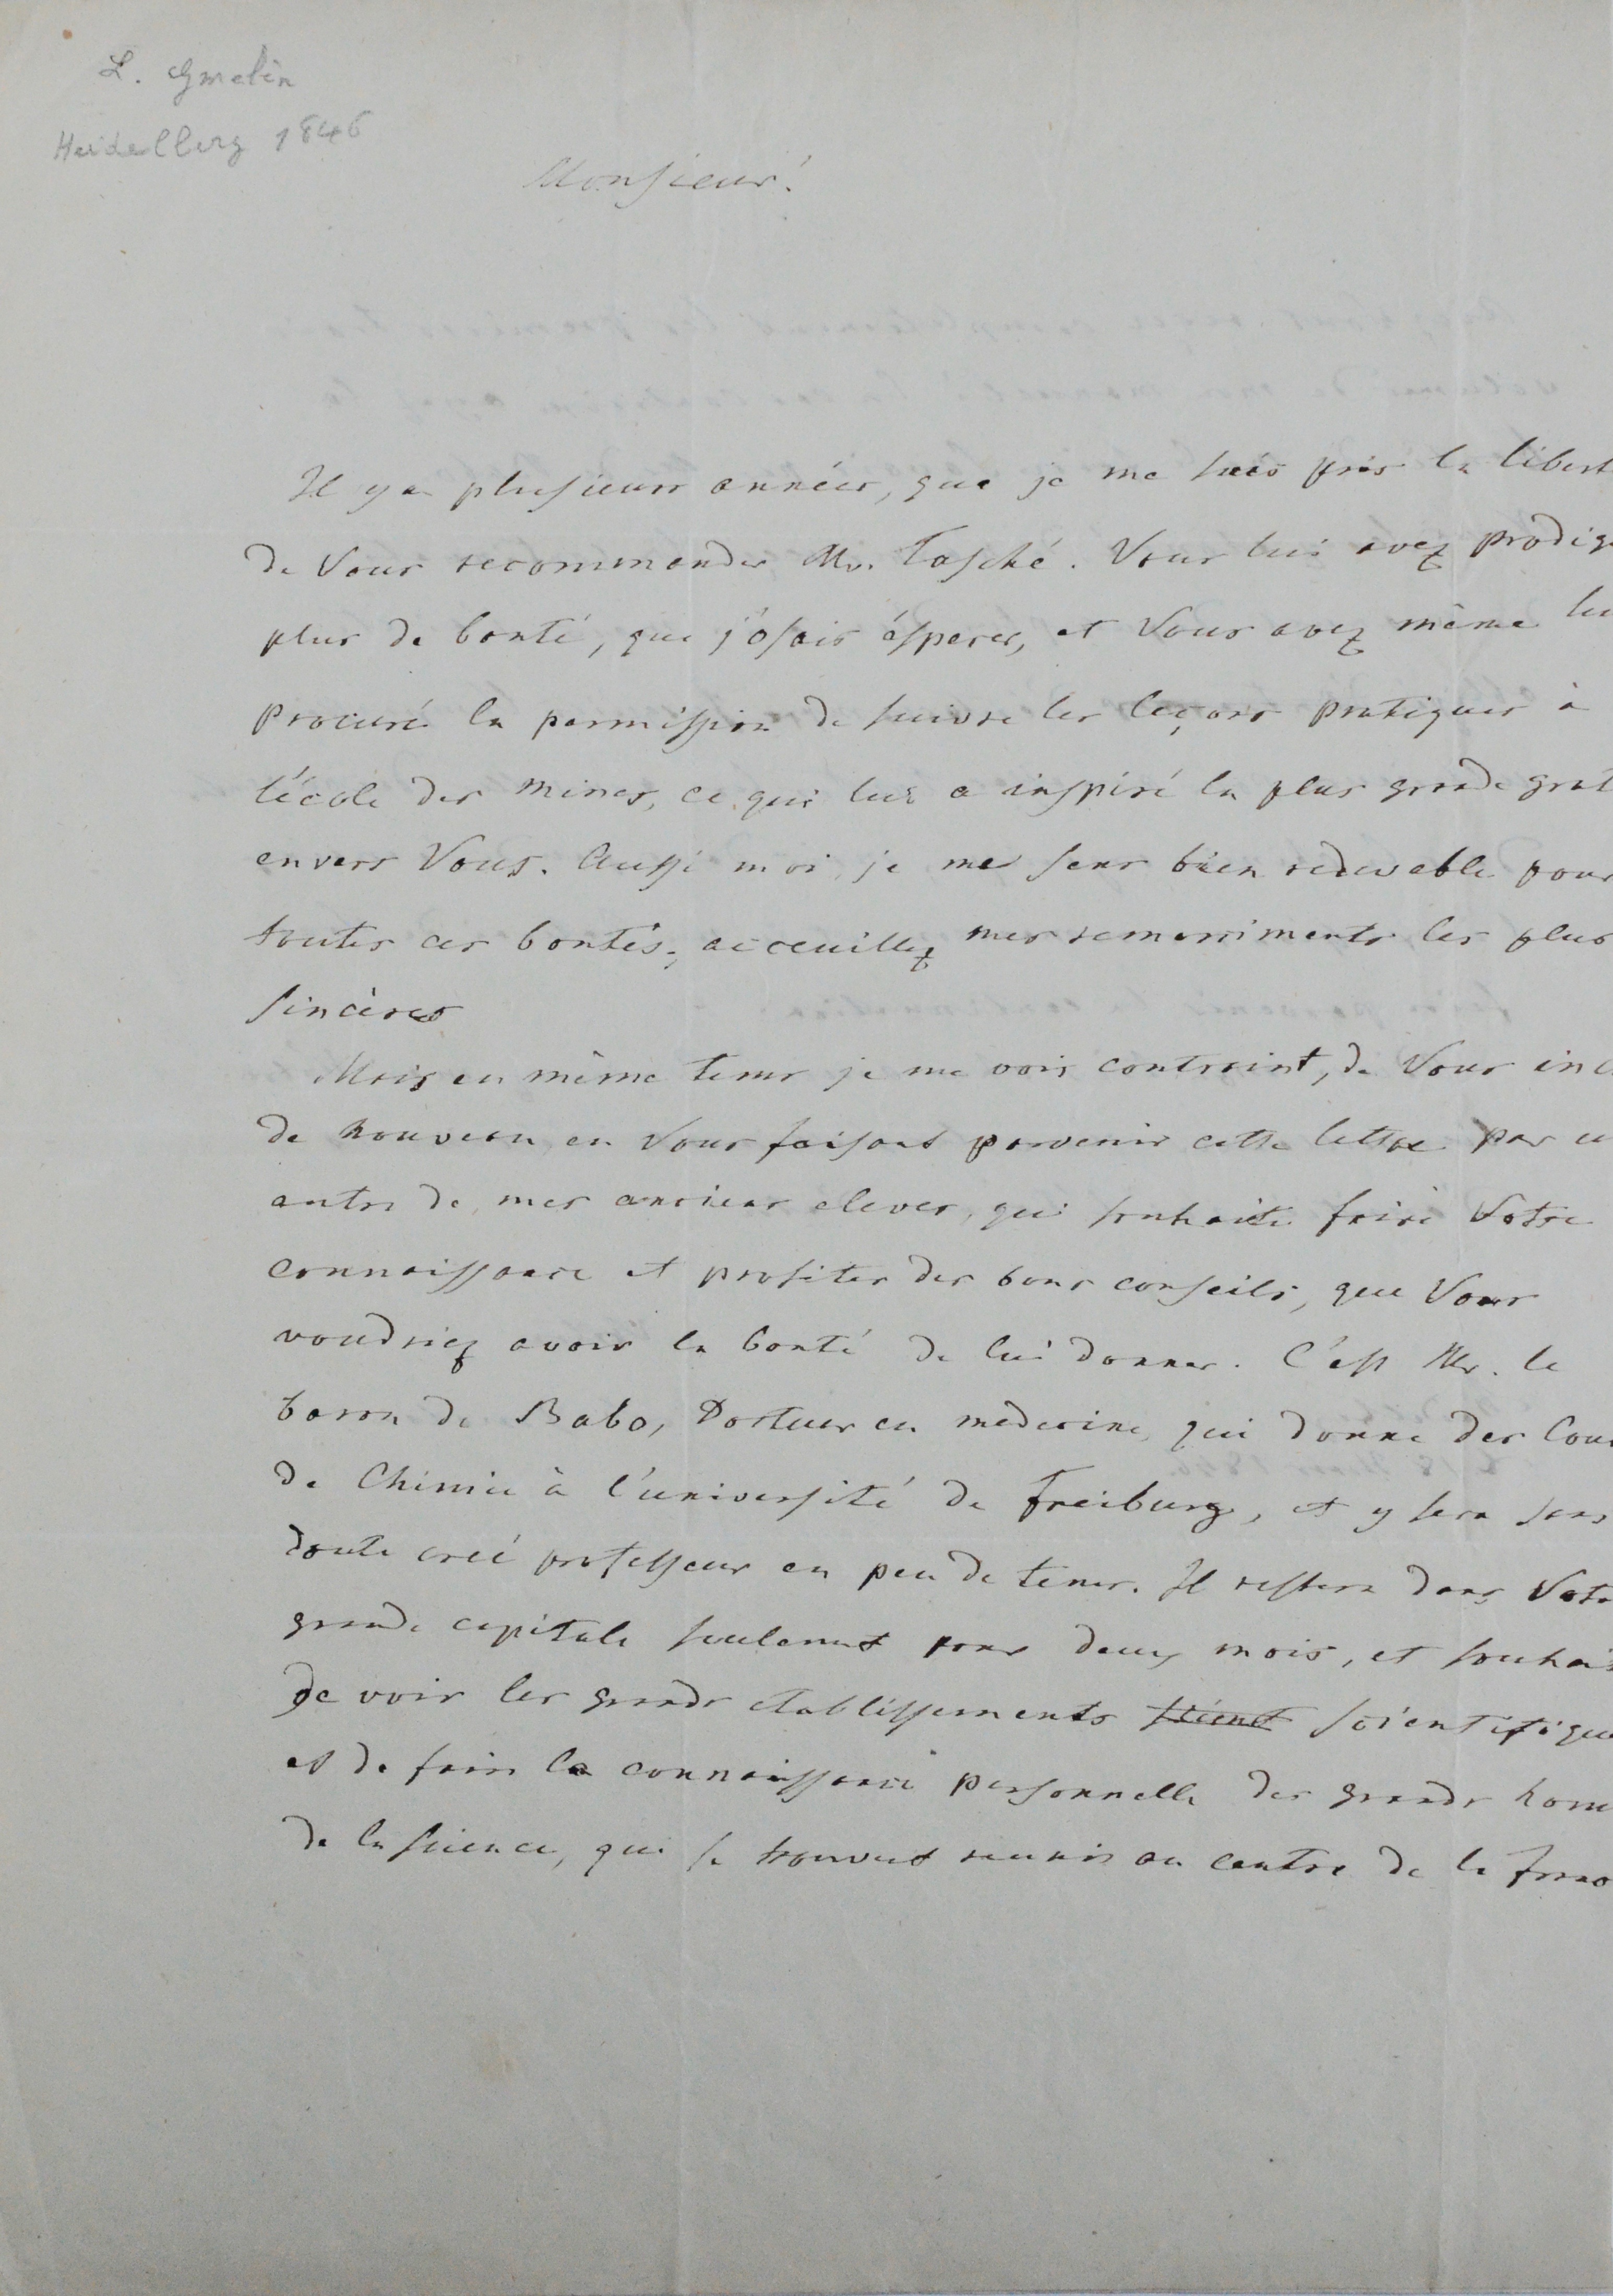 L. Gmelin
Heidelberg 1846
Monsieur!
Il y a plusieurs années, que je me suis pris la libert
de Vous recommander Mr. Tasché. Vous lui avez prodig
plus de bonté, que j'osais ésperer, et Vous avez même lu
procuré la permission de suivre les leçons pratiques à
l'école des mines, ce qui lui a inspiré la plus grande grat
envers Vous. Aussi moi je me sens bien redevable pour
toutes ces bontés; acceuillez mes remerciments les plus
sincères
Mais en même tems je me vois contraint, de Vous inc
de nouveau en Vous faisant parvenir cette lettre par u
autre de mes anciens eleves, qui souhaite faire Votre
connaissance et profiter des bons conseils, que Vous
voudriez avoir la bonté de lui donner. C'est Mr. le
baron de Babo, Docteur en medecine, qui donne des Cou
de Chimie à l'université de Freiburg, et y sera sans
doute creé professeur en peu de tems. Il restera dans Vot
grande capitale seulement pour deux mois, et souhai
de voir les grands etablissements scient scientifique
et de faire la connaissance personnelle des grands hom
de la science, qui se trouvent reunis au centre de la fran